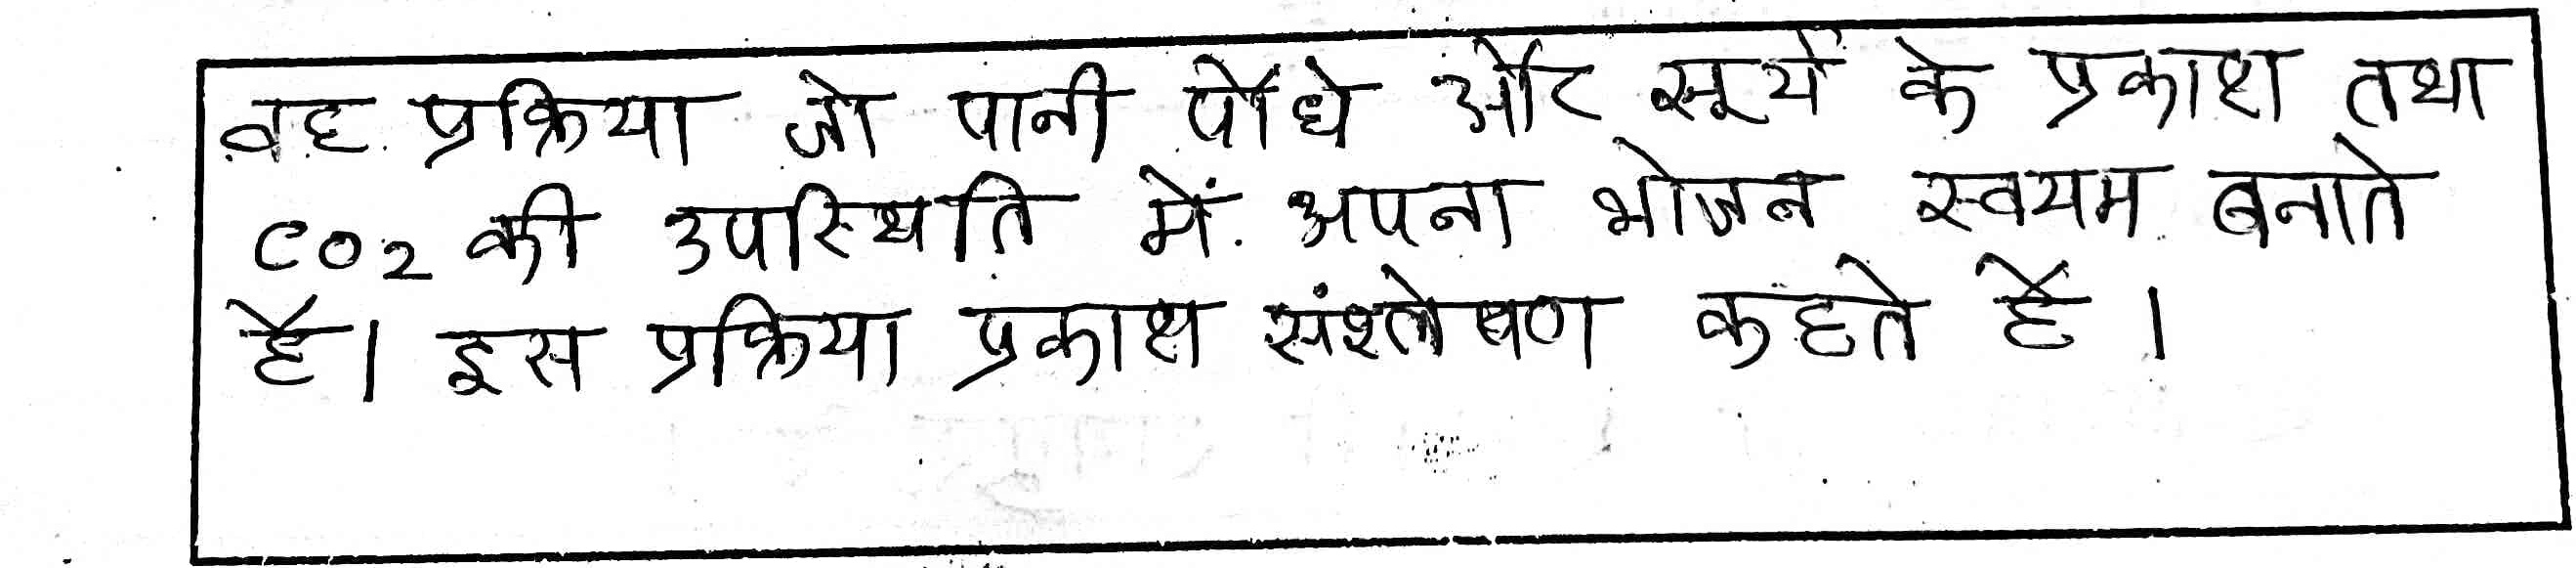 वह प्रक्रिया जो पानी पौधे और सूर्य के प्रकाश तथा
CO2 की उपस्थिति में अपना भोजन स्वयम बनाते
है। इस प्रक्रिया प्रकाश संश्लेषण कहते है।